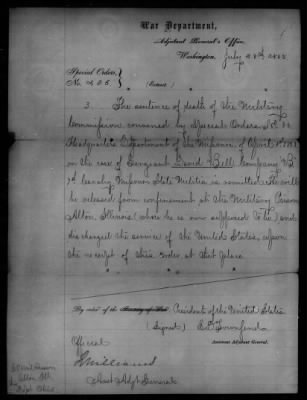 War Department,
Adjutant General's Office,
Washington, July 28th 1865
Special Orders,
No. 406 (Extract)
3. The sentence of death of the Military
Commission convened by Special Orders No.
Headquarters Department of the Missouri, of April
in the case of Sergeant David Bell, Company "B"
7th Cavalry Missouri State Militia is remitted. He will
be released from confinement at the Military Prison
Alton, Illinois (where he is now supposed to be) and
discharged the service of the United States, upon
the receipt of this order at that place.
By order of the President of the United States
(Signed) E. D. Townsend
Assistant Adjutant General.
Official
Asst Adjt General
Alton Ills